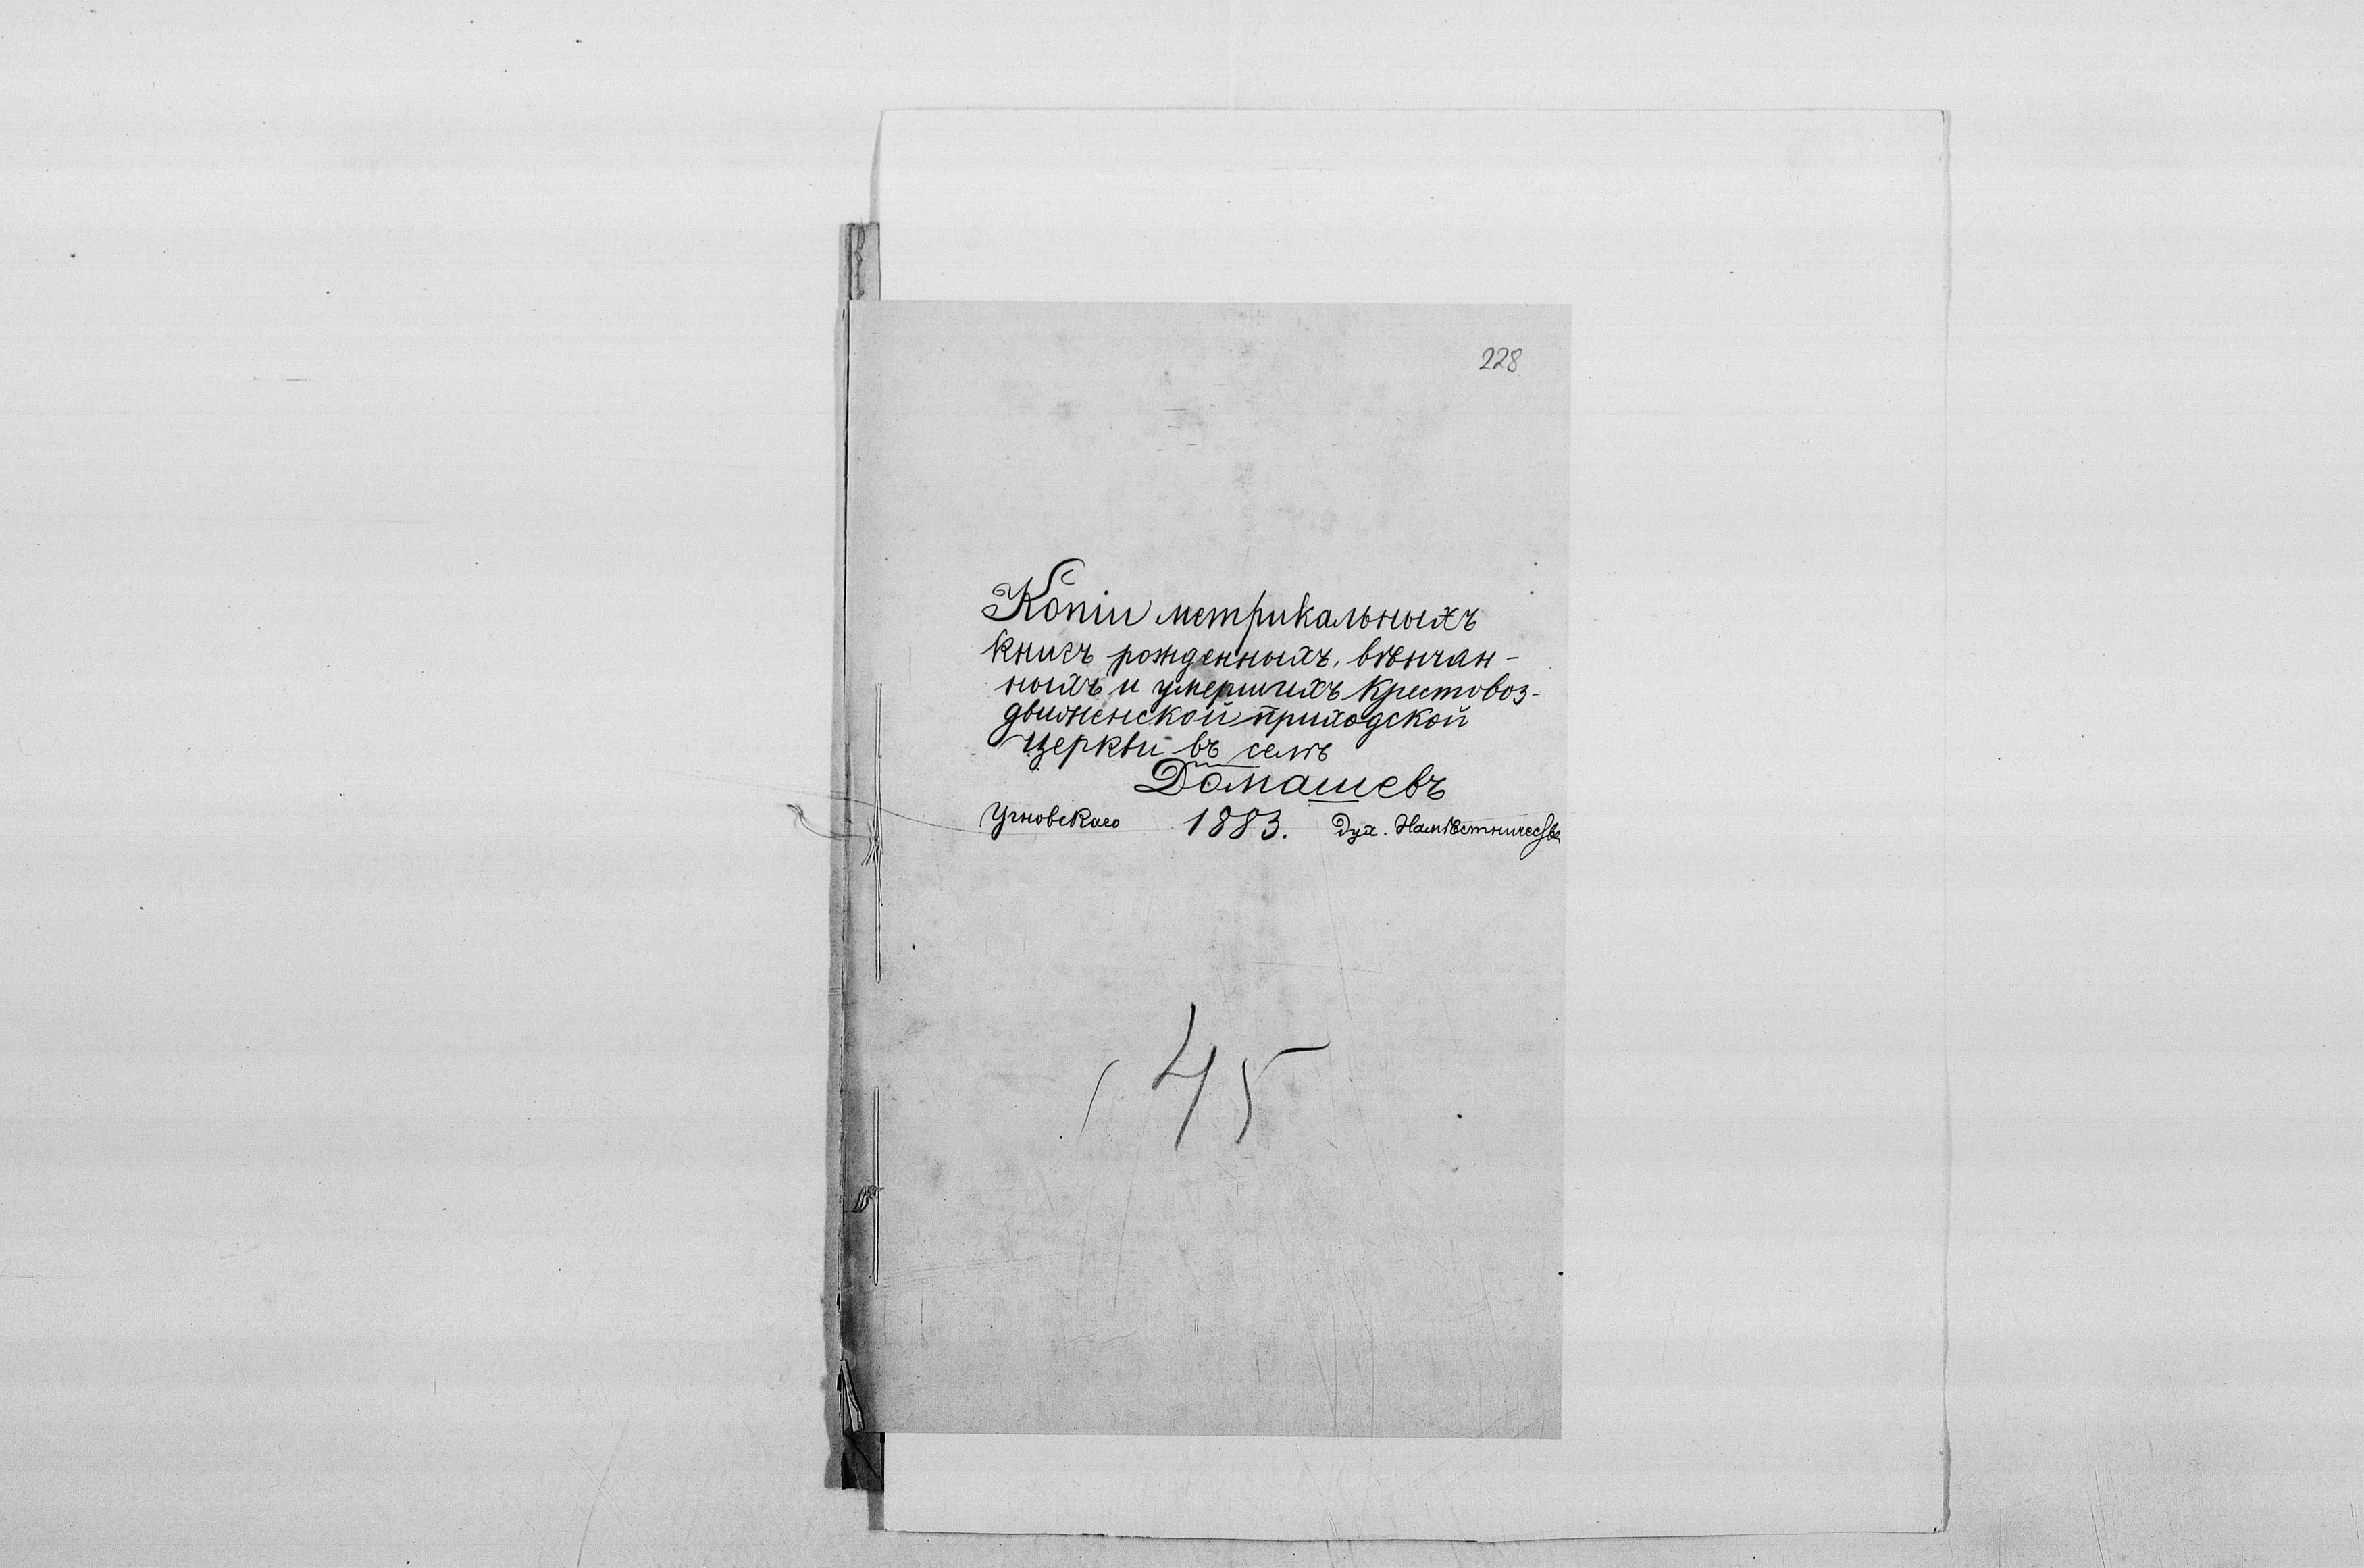 228
Копіи метрикальныхъ
книгъ рожденныхъ, вѣнчан-
ныхъ и умершихъ Крестовоз-
движенской приходской
церкви въ селѣ
Домашевъ
Угновского 1883. Дух. Намѣстничества
45